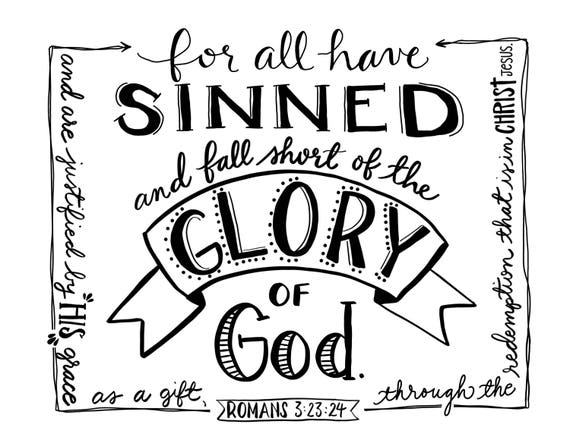 for all have
SINNED
and fall short of the
GLORY
OF
God.
and are justified by HIS grace
as a gift,
through the
redemption that is in CHRIST JESUS.
ROMANS 3:23-24